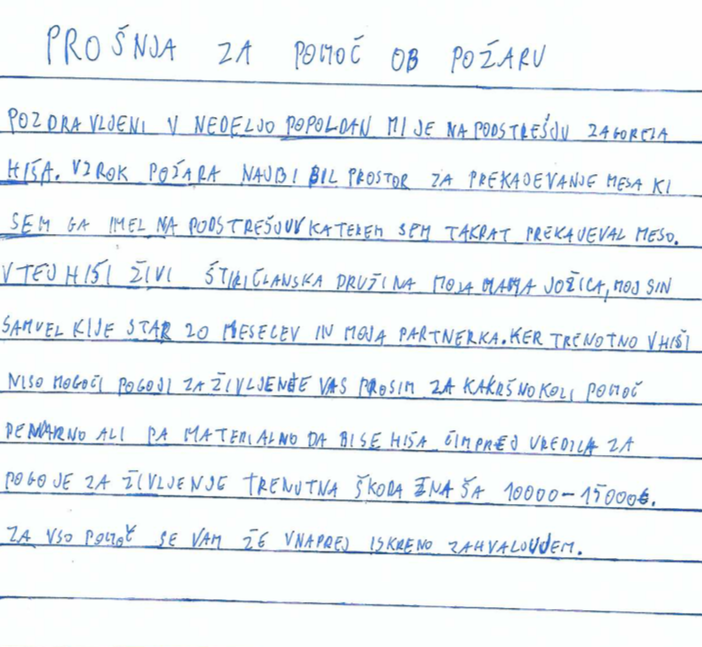 PROŠNJA ZA POMOČ OB POŽARU
POZDRAVLJENI V NEDELJO POPOLDAN MI JE NA PODSTREŠJU ZAGORELA
HIŠA. VZROK POŽARA NAJBI BIL PROSTOR ZA PREKAJEVANJE MESA KI
SEM GA IMEL NA PODSTREŠJU V KATEREM SEM TAKRAT PREKAJEVAL MESO.
V TEJ HIŠI ŽIVI ŠTIRIČLANSKA DRUŽINA MOJA MAMA JOŽICA, MOJ SIN
SAMUEL KI JE STAR 20 MESECEV IN MOJA PARTNERKA. KER TRENOTNO V HIŠI
NISO MOGOČI POGOJI ZA ŽIVLJENJE VAS PROSIM ZA KAKRŠNOKOLI POMOČ
DENARNO ALI PA MATERIALNO DA BI SE HIŠA ČIMPREJ UREDILA ZA
POGOJE ZA ŽIVLJENJE TRENUTNA ŠKODA ZNAŠA 10000-15000€.
ZA VSO POMOČ SE VAM ŽE VNAPREJ ISKRENO ZAHVALUJEM.